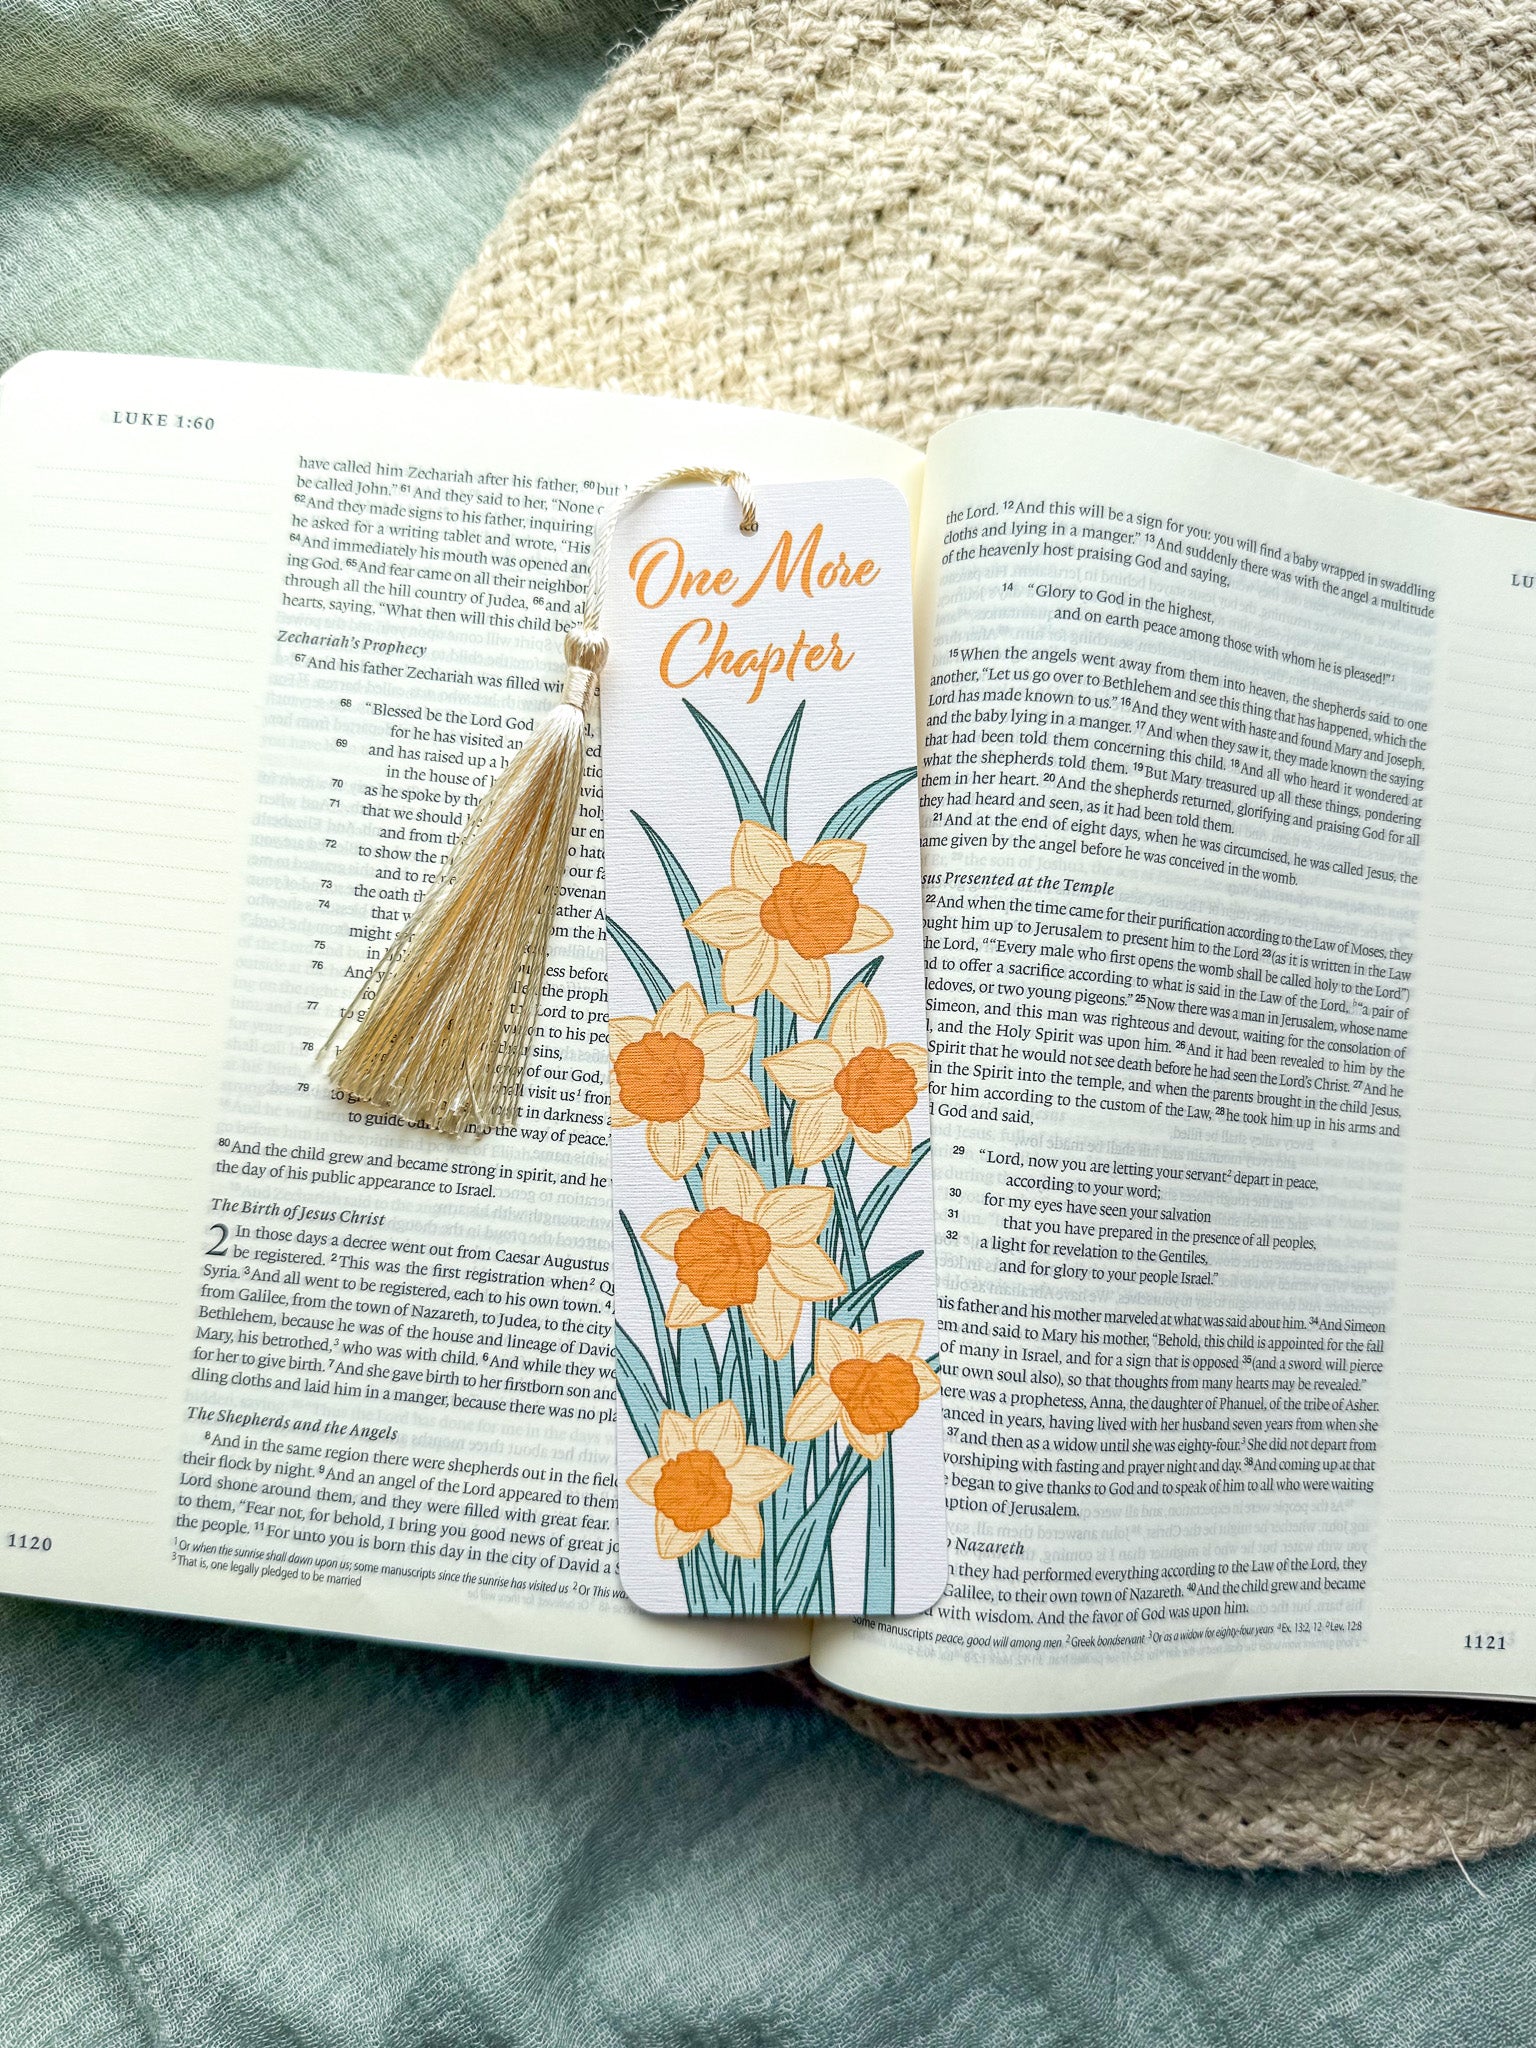 LUKE 1:60
have called him Zechariah after his father, 60 but
be called John.” 61 And they said to her, “None
62 And they made signs to his father, inquiring
he asked for a writing tablet and wrote, “His
64 And immediately his mouth was opened and
ing God. 65 And fear came on all their neighbor
through all the hill country of Judea, 66 and al
hearts, saying, “What then will this child be?”
Zechariah’s Prophecy
67 And his father Zechariah was filled wit
68 “Blessed be the Lord God
69 for he has visited an
and has raised up a h
in the house of
70 as he spoke by the
71 that we should
and from th
72 to show the
and to re
73 the oath th
74 that w
might
75 in
76 And
77 to
78
79 to
to guide our into the way of peace.”
80 And the child grew and became strong in spirit, and he
the day of his public appearance to Israel.
The Birth of Jesus Christ
2 In those days a decree went out from Caesar Augustus
be registered. 2 This was the first registration when2
Syria. 3 And all went to be registered, each to his own town. 4
from Galilee, from the town of Nazareth, to Judea, to the city
Bethlehem, because he was of the house and lineage of David
Mary, his betrothed,3 who was with child. 6 And while they we
for her to give birth. 7 And she gave birth to her firstborn son and
dling cloths and laid him in a manger, because there was no pla
The Shepherds and the Angels
8 And in the same region there were shepherds out in the fiel
their flock by night. 9 And an angel of the Lord appeared to them
Lord shone around them, and they were filled with great fear.
to them, “Fear not, for behold, I bring you good news of great jo
the people. 11 For unto you is born this day in the city of David a
1 Or when the sunrise shall dawn upon us; some manuscripts since the sunrise has visited us 2 Or This was
3 That is, one legally pledged to be married
1120
One More
Chapter
the Lord. 12 And this will be a sign for you: you will find a baby wrapped in swaddling
cloths and lying in a manger.” 13 And suddenly there was with the angel a multitude
of the heavenly host praising God and saying,
14 “Glory to God in the highest,
and on earth peace among those with whom he is pleased!”1
15 When the angels went away from them into heaven, the shepherds said to one
another, “Let us go over to Bethlehem and see this thing that has happened, which the
Lord has made known to us.” 16 And they went with haste and found Mary and Joseph,
and the baby lying in a manger. 17 And when they saw it, they made known the saying
that had been told them concerning this child. 18 And all who heard it wondered at
what the shepherds told them. 19 But Mary treasured up all these things, pondering
them in her heart. 20 And the shepherds returned, glorifying and praising God for all
they had heard and seen, as it had been told them.
21 And at the end of eight days, when he was circumcised, he was called Jesus, the
name given by the angel before he was conceived in the womb.
sus Presented at the Temple
22 And when the time came for their purification according to the Law of Moses, they
ught him up to Jerusalem to present him to the Lord 23 (as it is written in the Law
the Lord, “Every male who first opens the womb shall be called holy to the Lord”)
nd to offer a sacrifice according to what is said in the Law of the Lord, “a pair of
ledoves, or two young pigeons.” 25 Now there was a man in Jerusalem, whose name
Simeon, and this man was righteous and devout, waiting for the consolation of
l, and the Holy Spirit was upon him. 26 And it had been revealed to him by the
Spirit that he would not see death before he had seen the Lord’s Christ. 27 And he
in the Spirit into the temple, and when the parents brought in the child Jesus,
for him according to the custom of the Law, 28 he took him up in his arms and
d God and said,
29 “Lord, now you are letting your servant2 depart in peace,
according to your word;
30 for my eyes have seen your salvation
31 that you have prepared in the presence of all peoples,
32 a light for revelation to the Gentiles,
and for glory to your people Israel.”
his father and his mother marveled at what was said about him. 34 And Simeon
em and said to Mary his mother, “Behold, this child is appointed for the fall
of many in Israel, and for a sign that is opposed 35 (and a sword will pierce
ur own soul also), so that thoughts from many hearts may be revealed.”
ere was a prophetess, Anna, the daughter of Phanuel, of the tribe of Asher.
anced in years, having lived with her husband seven years from when she
37 and then as a widow until she was eighty-four.3 She did not depart from
worshiping with fasting and prayer night and day. 38 And coming up at that
began to give thanks to God and to speak of him to all who were waiting
ption of Jerusalem.
o Nazareth
they had performed everything according to the Law of the Lord, they
Galilee, to their own town of Nazareth. 40 And the child grew and became
with wisdom. And the favor of God was upon him.
some manuscripts peace, good will among men 2 Greek bondservant 3 Or as a widow for eighty-four years a Ex. 13:2, 12 b Lev. 12:8
1121
LU